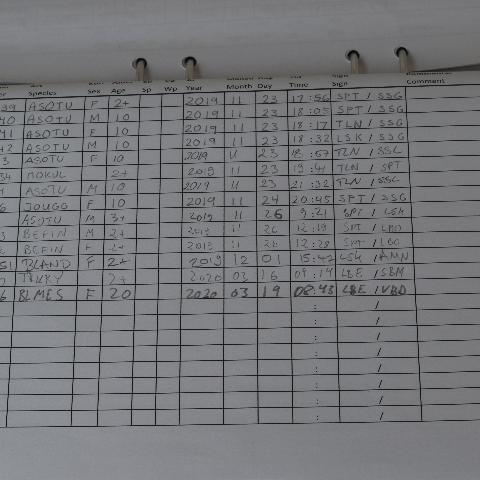 Species Sex Age Sp Wp Year Month Day Time Sign Comment
39 ASOTU F 2+ 2019 11 23 17:56 SPT / SSG
40 ASOTU M 10 2019 11 23 18:05 SPT / SSG
41 ASOTU F 10 2019 11 23 18:17 TLN / SSG
42 ASOTU M 10 2019 11 23 18:32 LSK / SSG
3 ASOTU F 10 2019 11 23 TLN / SSG
2+ 2019 11 23 19:41 TLN / SPT
ASOTU M 10 2019 11 23 21:32 TLN / SSG
6 JOUGG F 10 2019 11 24 20:45 SPT / SSG
ASOTU M 3+ 2019 11 26 9:21 SPT / LSH
BEFIN M 2+ 11 26 12:19 SPT / LBO
BEFIN F 2+ 11 26 12:28 SPT / LBO
51 BLAND F 2+ 2019 12 01 15:42 LSH / AMN
2+ 2020 03 16 09:14 LBE / SBM
6 BLMES F 20 2020 03 19 08:43 LBE / VBD